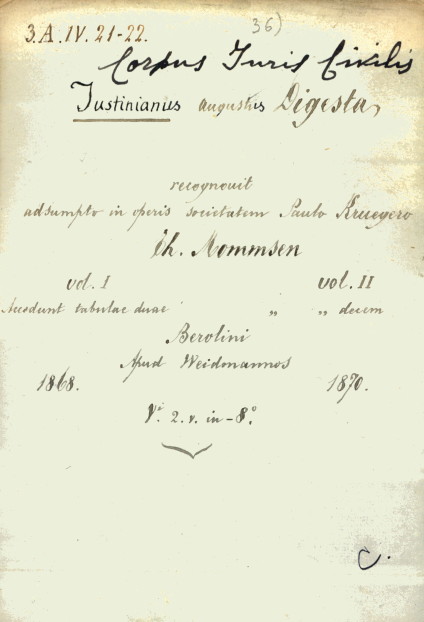 36)
3.A.IV.21-22.
Corpus Iuris Civilis
Iustinianus augustus Digesta,
recognouit
adsumpto in operis societatem Paulo Kruegero
Th. Mommsen
vol. I vol. II
Accedunt tabulae duae „ „ decem
Berolini
Apud Weidmannos
1868. 1870.
Vi. 2. v. in-8º.
C.